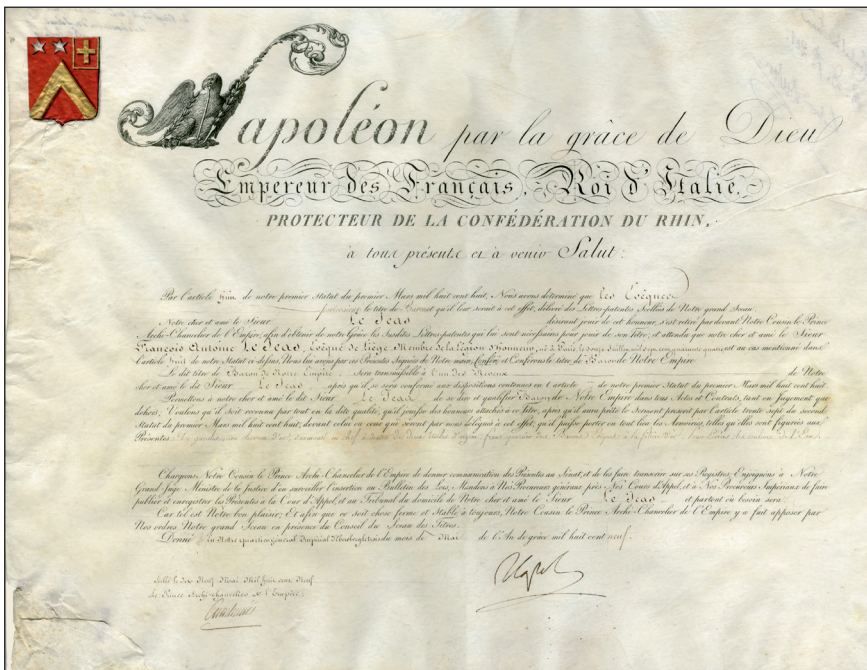 Napoléon par la grâce de Dieu
Empereur des Français, Roi d'Italie,
PROTECTEUR DE LA CONFÉDÉRATION DU RHIN,
à tous présents et à venir Salut:
Par l'article huit de notre premier Statut du premier Mars mil huit cent huit, Nous avons déterminé que les Evêques
porteraient le titre de Baron et qu'il leur serait à cet effet, délivré des Lettres patentes Scellées de Notre grand Sceau.
Notre cher et amé le Sieur Le Jeas désirant jouir de cet honneur, s'est retiré pardevant Notre Cousin le Prince
Archi-Chancelier de l'Empire, afin d'obtenir de notre Grâce les Susdites Lettres-patentes qui lui sont nécessaires pour jouir de son titre; et attendu que notre cher et amé le Sieur
François Antoine Le Jeas, Evêque de Liège, Membre de la Légion d'honneur, né à Paris est au cas mentionné dans
l'article huit de notre Statut ci-dessus, Nous lui avons par ces Présentes Signées de Notre main, Conféré et Conférons le titre de Baron de Notre Empire
Le dit titre de Baron de Notre Empire sera transmissible à l'un des Neveux de Notre
cher et amé le dit Sieur Le Jeas après qu'il se sera conformé aux dispositions contenues en l'article de notre premier Statut du premier Mars mil huit cent huit.
Permettons à notre cher et amé le dit Sieur Le Jeas de se dire et qualifier Baron de Notre Empire dans tous Actes et Contrats, tant en Jugement que
dehors; Voulons qu'il soit reconnu par tout en la dite qualité, qu'il jouisse des honneurs attachés à ce titre, après qu'il aura prêté le Serment prescrit par l'article trente sept du second
Statut du premier Mars mil huit cent huit, devant celui ou ceux qui seront par nous délégués à cet effet, qu'il puisse porter en tout lieu les Armoiries, telles qu'elles sont figurées aux
Présentes
Chargeons Notre Cousin le Prince Archi-Chancelier de l'Empire de donner communication des Présentes au Sénat, et de les faire transcrire sur ses Registres, Enjoignons à Notre
Grand Juge Ministre de la Justice d'en surveiller l'insertion au Bulletin des Lois, Mandons à Nos Procureurs généraux près Nos Cours d'Appel, et à Nos Procureurs Impériaux de faire
publier et enregistrer les Présentes à la Cour d'Appel, et au Tribunal du domicile de Notre cher et amé le Sieur Le Jeas et partout où besoin sera:
Car tel est Notre bon plaisir; Et afin que ce soit chose ferme et Stable à toujours, Notre Cousin le Prince Archi-Chancelier de l'Empire, y a fait apposer par
Nos ordres Notre grand Sceau en présence du Conseil du Sceau des Titres.
Donné en Notre quartier général Impérial du mois de Mai de l'An de grâce mil huit cent neuf.
Scellé le dix Neuf Mai Mil huit cent Neuf
Le Prince Archi-chancelier de l'Empire: